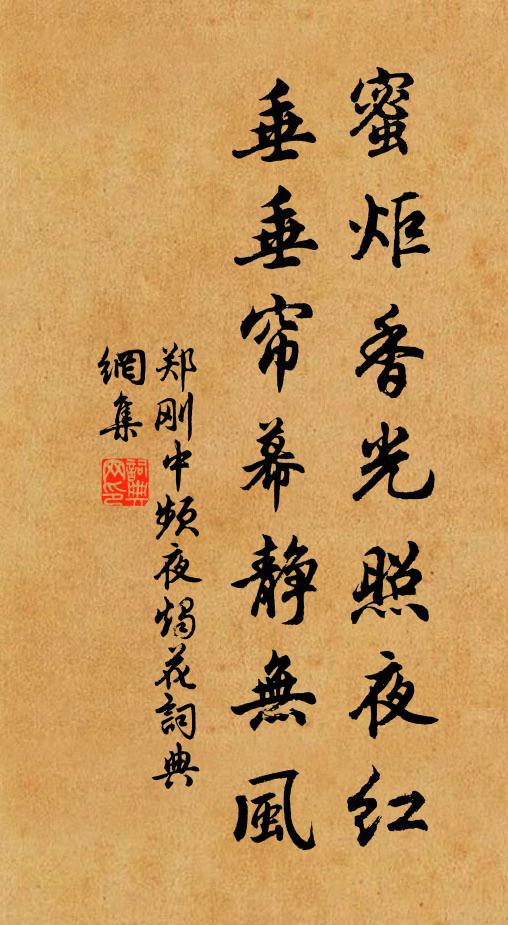 蜜炬香光照夜红
垂垂帘幕静無風
郑刚中频夜燭花詞典
網集
詞典
网印